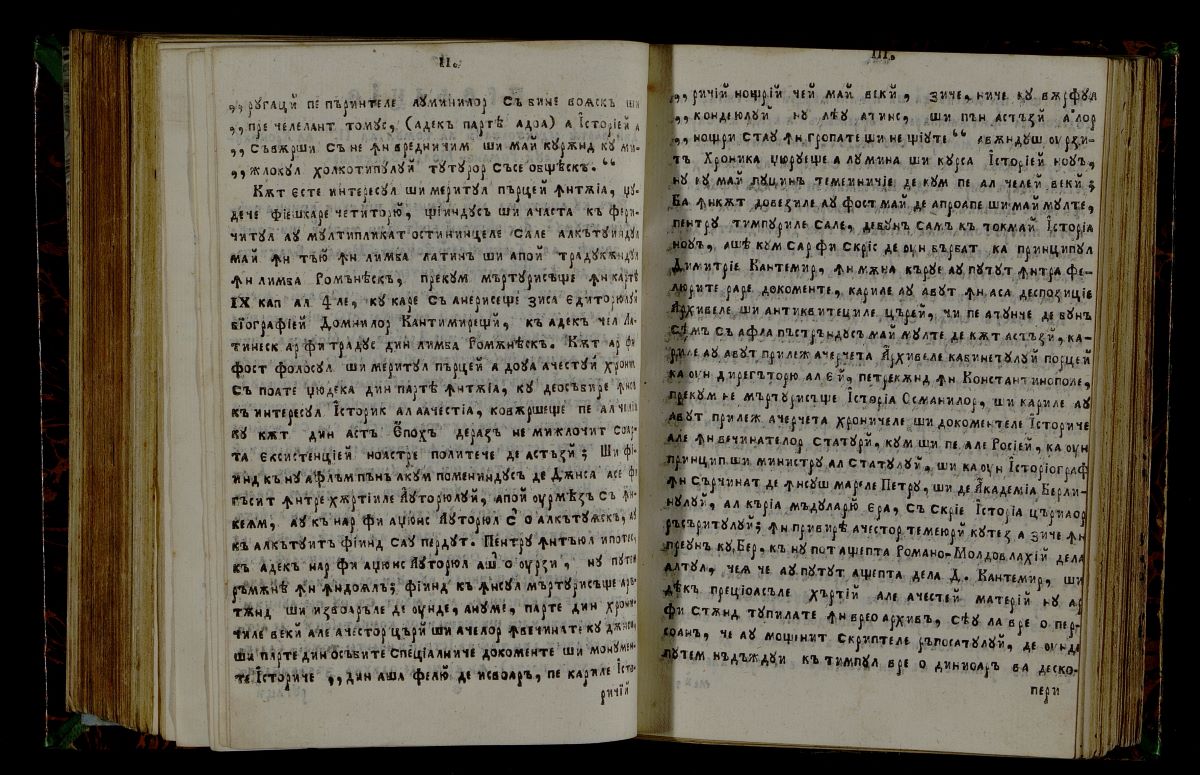 II.
„ругацй пе пъринтеле луминилор съ бине вояск ши
„пре челелант томус, (адекъ партѣ адоа) а Історіей а
„съвжрши съ не ꙟн вредничим ши май куржнд ку ми-
„жлокул холкотипулуй тутурор съсе общѣскъ.“
Кѫт єсте интересул ши меритул пърцей ꙟнтѫіа, џу-
дече фіешкаре четиторю, щіиндусъ ши ачаста къ фери-
читул ау мултипликат остининцеле сале алкътуиндул
май ꙟн тъю ꙟн лимба латинъ ши апой традукѫндул
ꙟн лимба Ромънѣскъ, прекум мъртурисѣще ꙟн карте
IX кап ал 4 ле, ку каре съ анерисеще зиса єдиторюлуй
біографіей Домнилор Кантимирещй, къ адекъ чел Ла-
тинеск ар фи традус дин лимба Ромѫнѣскъ. Кѫт ар фи
фост фолосул ши меритул пърцей а доуа ачестуй хроник
съ поате џюдека дин партѣ ꙟнтѫіа, ку деосъбире ꙟнсъ
къ интересул Історик ал ачестіа, ковѫршеще пе ал челіи
ку кѫт дин астъ Єпохъ деразъ не мижлочит соар-
та єксистенціей ноастре политече де астъзй; Ши фі-
инд къ ну афлъм пънъ акум поменидусъ де Дѫнса а се фи
гъсит ꙟнтре хѫртіиле Ауторюлуй, апой оурмѣзъ съ ꙟн-
кеям, ау къ нар фи ацюнс Ауторюл съ о алкътуяскъ, ау
къ алкътуит фіинд сау пердут. Пентру ꙟнтъюл ипотес,
къ адекъ нар фи ацюнс Ауторюл аш о оурзи, ну путем
ръмѫнѣ ꙟн ꙟндоялъ; фіинд къ ꙟнсул мъртурисѣще аръ-
тѫнд ши извоаръле де оунде, ануме, парте дин хрони-
чиле векй але ачестор църй ши ачелор ꙟвечинате ку дѫнса,
ши парте дин осъбите спеціалниче докоменте ши монумен-
те Істориче „дин аша фелю де исвоаръ, пе кариле Істо-
ричій
III.
„ричій нощрій чей май векй, зиче, ниче ку вѫрфул
„кондеюлуй ну лѣу атинс, ши пън астъзй алор
„нощри стау ꙟн гропате ши не щіуте“ авѫндуш оурзи-
тъ Хроника џюруеще а лумина ши курса Історіей ноуъ,
ну ку май пуцинъ темеиничіе де кум пе ал челей векй;
Ба ꙟнкѫт довезиле ау фост май де апроапе ши май мулте,
пентру тимпуриле сале, дебунъ самъ къ токмай Історіа
ноуъ, ашѣ кум сар фи скріс де оун бърбат ка принципул
Димитріе Кантемир, ꙟн мѫна къруе ау путут ꙟнтра фе-
люрите раре докоменте, кариле ау авут ꙟн аса деспозиціе
Архивеле ши антиквитециле църей, чи пе атунче де бунъ
сѣмъ съ афла пъстръндусъ май мулте де кѫт астъзй, ка-
риле ау авут прилеж ачерчета Архивеле кабинетулуй порцей
ка оун дирегъторю ал єй, петрекѫнд ꙟн Константинополе,
прекум не мъртурисѣще Історіа Османилор, ши кариле ау
авут прилеж ачерчета хроничеле ши докоментеле Істориче
але ꙟнвечинателор статурй, кум ши пе але Росіей, ка оун
принцип ши министру ал статулуй, ши ка оун Історіограф
ꙟнсърчинат де ꙟнсуш мареле Петру, ши де Академіа Берли-
нулуй, ал къріа мъдуларю єра, съ скріе Історіа църилор
ръсъритулуй; ꙟн привирѣ ачестор темеюри кутез а зиче ꙟн
преунъ ку Бер. къ ну пот ащепта Романо-Молдовлахій дела
алтул, чея че ау путут ащепта дела Д. Кантемир, ши
дѣкъ преціоасъле хъртій але ачестей матерій ну ар
фи стѫнд тупилате ꙟн врео архивъ, сѣу ла вре о пер-
соанъ, че ау мощенит скриптеле ръпосатулуй, де оунде
путем нъдъждуи къ тимпул вре о диниоаръ ва деско-
пери